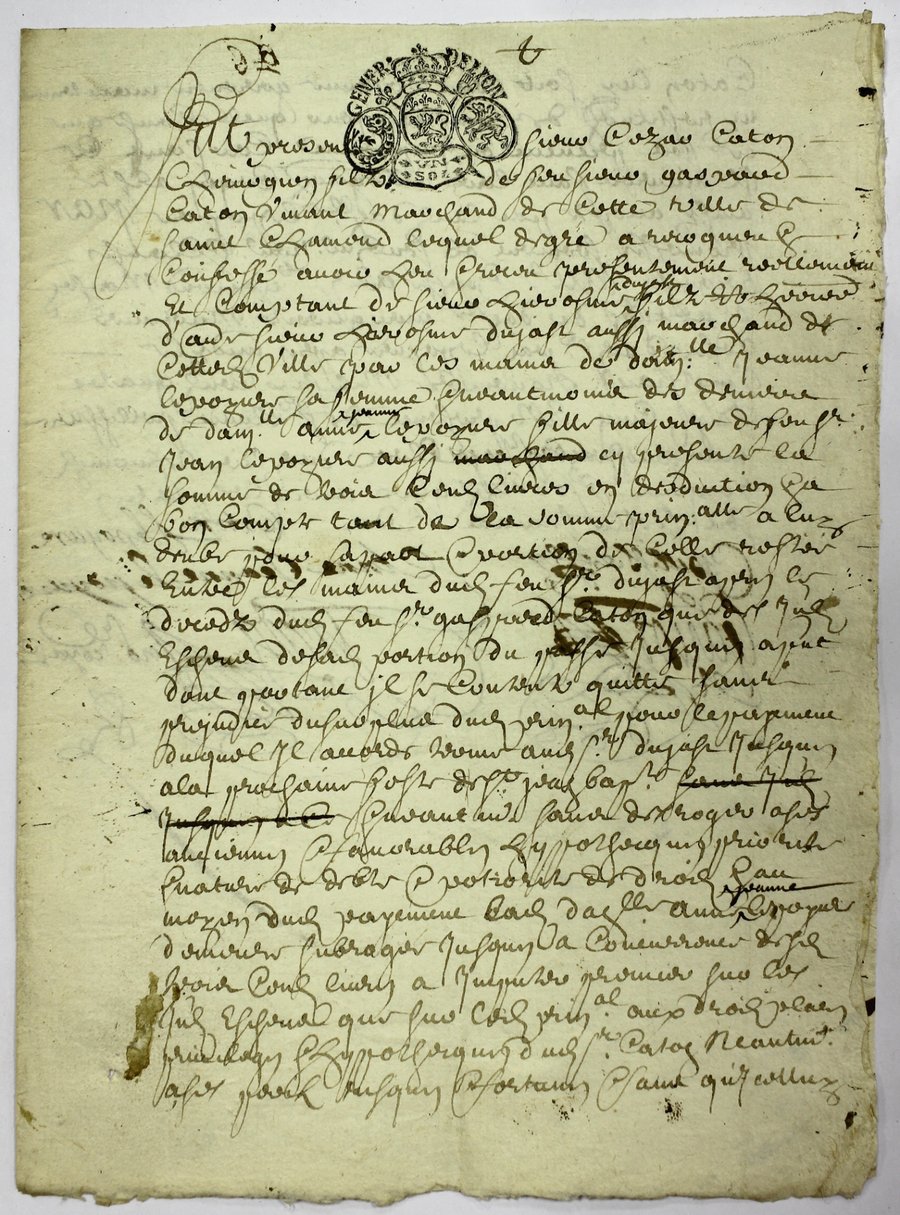 GENER DE LYON
VN SOL
Fut present sieur Cezar Caton
Chirurgien filz de feu sieur gaspard
Caton Vivant Marchand de Cette ville de
saint Chamond lequel de gré a recogneu &
Confessé avoir heu & receu presentement reellement
Et Comptant de sieur hierosme dujast filz & heritier
d'autre sieur hierosme dujast aussy marchand de
Cetted. Ville par les mains de dam.lle Jeanne
lepozure sa femme & neantmoins des deniers
de dam.lle anne Jeanne lepozure fille majeure de feu sr.
Jean lepozure aussy marchand cy presente la
somme de trois Centz livres en deduction &a
bon Compte tant de la somme prin.alle a luy
deube pour sa part & portion de Celle restée
Entre les mains dud. feu sr. dujast apres le
decedz dud. feu sr. gaspard Caton que des
Escheus de sad. portion du passé Jusques a
dont partant il se Contente quitte sans
prejudice du surplus dud. prin.al pour le payement
duquel Il accorde terme aud. sr. dujast Jusques
a la prochaine feste de st. jean bap.te sans
Jusques a Ce & neantm.s sans desroger a ses
anciennes & favorables hypotheques priorité
& nature de debte & potiorité de droit & au
moyen dud. payement lad. da.lle anne Jeanne lepozure
demeure subrogée Jusques a Concurrence desd.
trois Centz livres a Imputer premier sur les
Escheus que sur led. prin.al aux droitz
privileges & hypotheques dud. sr. Caton Neantm.t
a ses perilz risques & fortunes & sans qu'Icelluy